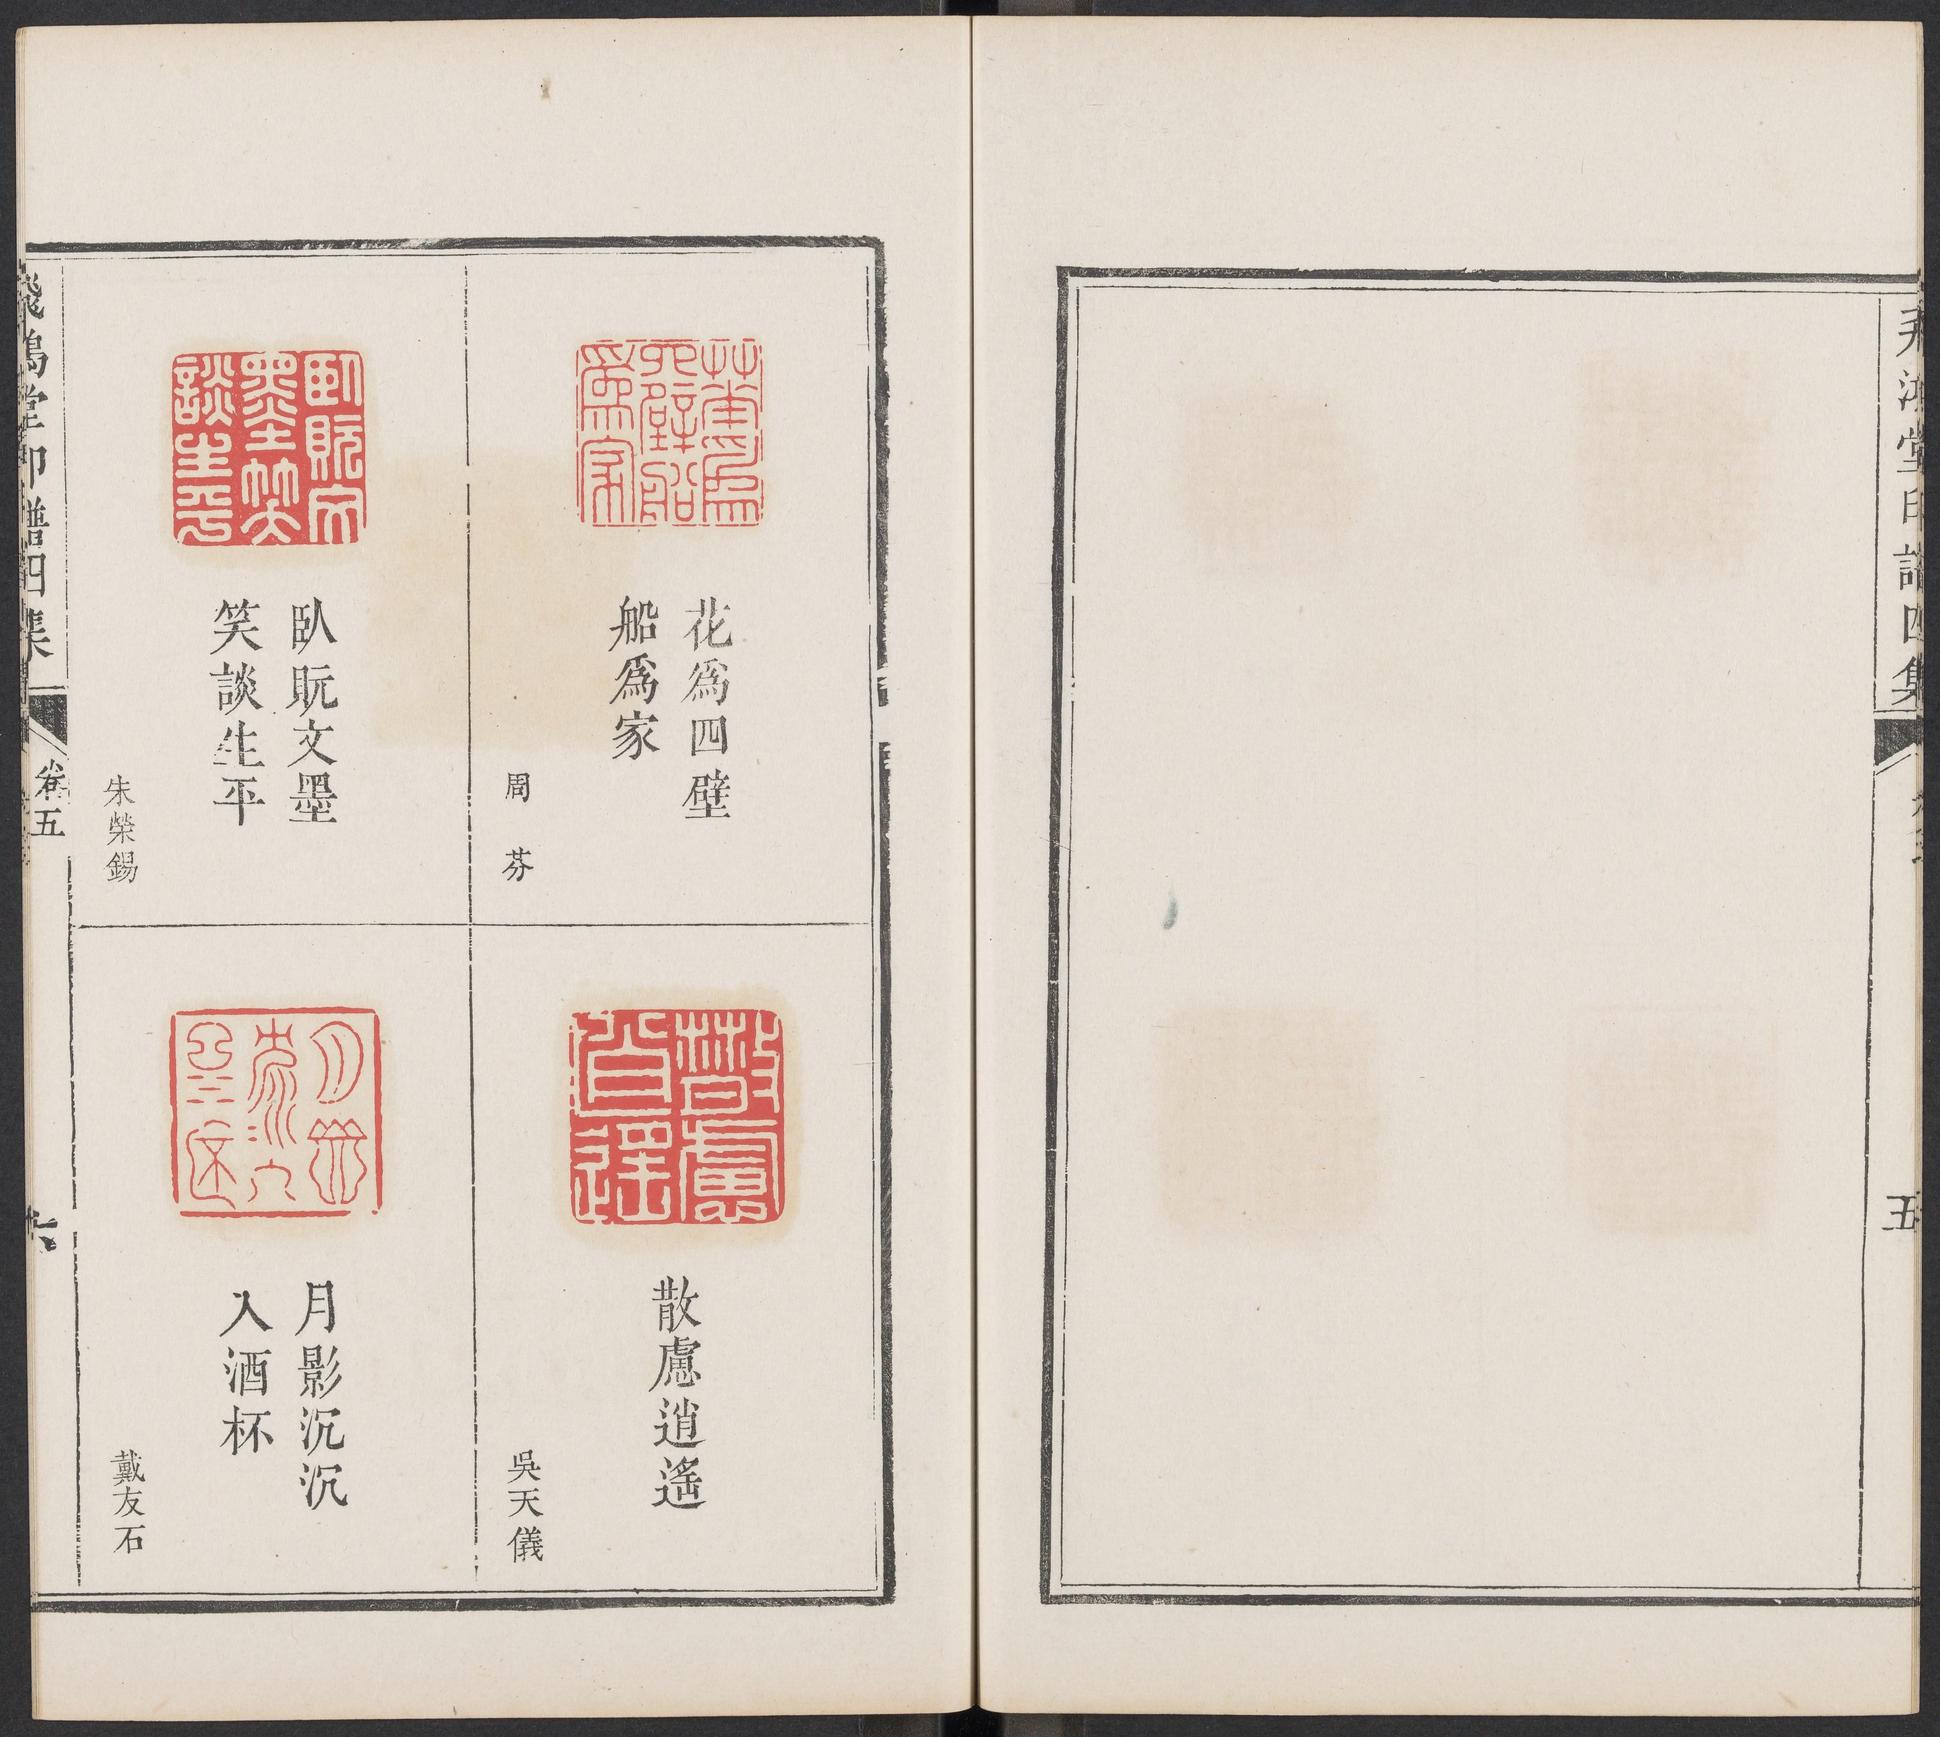 飛鴻堂印譜四集
五
花為四壁
船為家
周芬
散慮逍遙
吳天儀
臥貦文墨
笑談生平
朱榮錫
月影沉沉
入酒杯
戴友石
飛鴻堂印譜四集
卷五
六